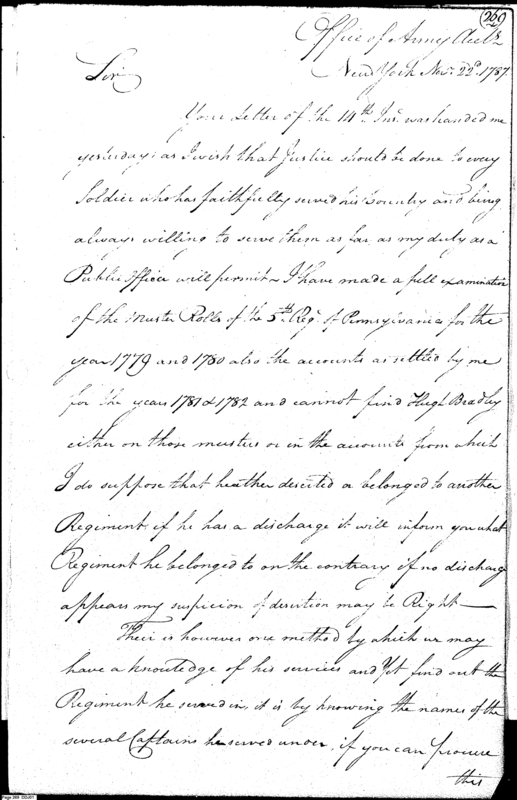 269
Office of Army Accts
New York Novr. 22d. 1787.
Sir
Your Letter of the 14th. Inst. was handed me
yesterday: as I wish that Justice should be done to every
Soldier who has faithfully served his Country and being
always willing to serve them as far as my duty as a
Public Officer will permit I have made a full examination
of the Muster Rolls of the 5th. Regt. of Pennsylvania for the
year 1779 and 1780 also the accounts as settled by me
for the years 1781 & 1782 and cannot find Hugh Bradley
either on those musters or in the accounts from which
I do suppose that he either deserted or belonged to another
Regiment if he has a discharge it will inform you what
Regiment he belonged to on the contrary if no discharge
appears my suspicion of desertion may be Right —
Their is however one method by which we may
have a knowledge of his services and Yet find out the
Regiment he served in, it is by knowing the names of the
several Captains he served under, if you can procure
this
Page 269